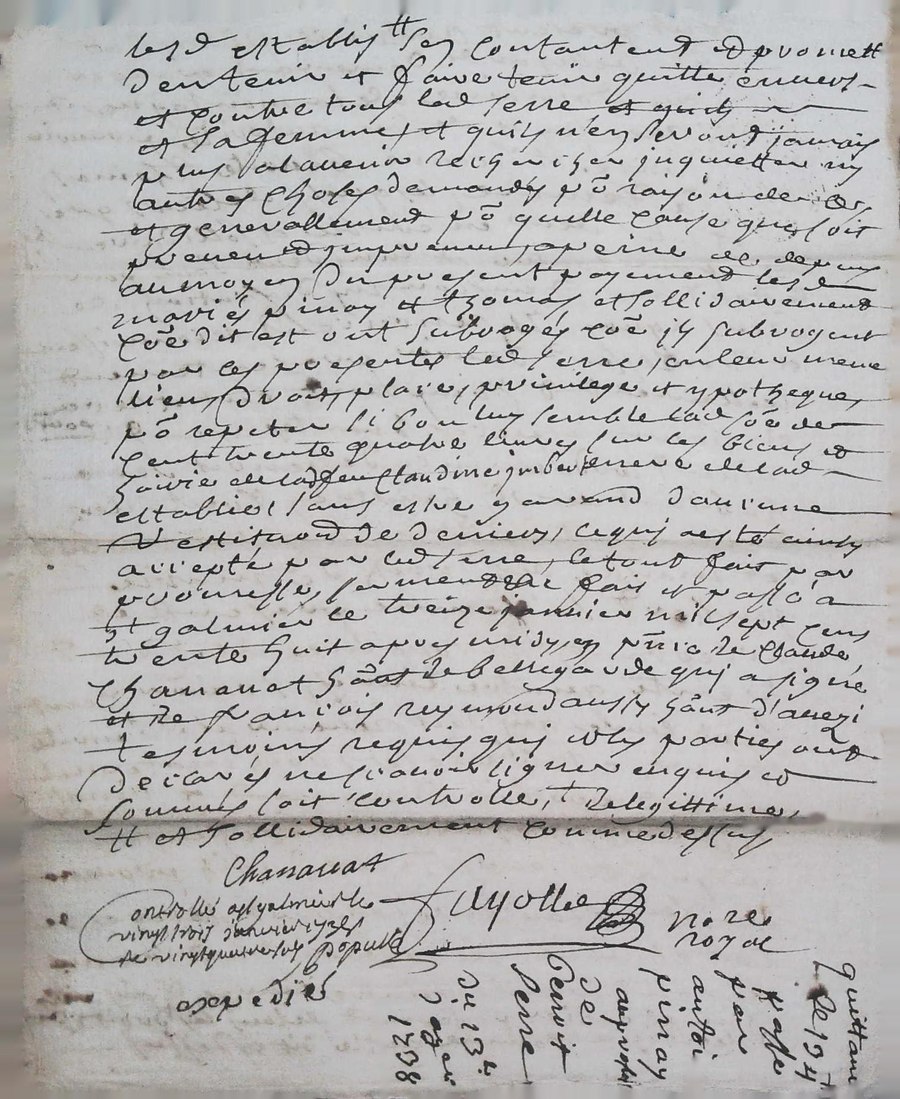 lesd establis tt sen contantent et promett
dentenir et faire tenir quitte envers
et contre tous led serre et quils
et sa femme, et quils n'en seront jamais
plus alavenir recherches inquiettés ny
autres choses demandés po raison de ce
et generallement po quelle cause que soit
au moyen du present payement lesd
mariés pinay et thomas et sollidairement
coe dit est ont subrogés coe ils subrogent
par ces presentes led serre en leur meme
lieu, droit, place, privilege et ypotheques
po repeter si bon luy semble lad soe de
cent trente quatre livres sur les biens et
hoirie de ladfeu Claudine imbert mere de lad
establie, sans estre garand d'aucune
restitu'on de deniers, ce qui a esté ainsy
accepté par led serre, le tout fait par
promesse, serment fait et passé a
st galmier le treize janvier mil sept cens
trente huit apres midy, en pnce de Claude
Chanauat hant de bellegarde qui a signé
et de francois reymond aussy hant d'avezi
tesmoins requis qui et les parties ont
declarés ne scavoir signer enquis et
sommés soit controllé, t Relegittime
tt et sollidairement comme dessus
Chanauat
Controllé a st galmier le
vingt trois janvier 1738
Fayolle
no re
royal
expedié
Quittance
de 134
passé
par
antoi
pinay
au proffit
de
Benoit
Serre
du 13e
janvier
1738